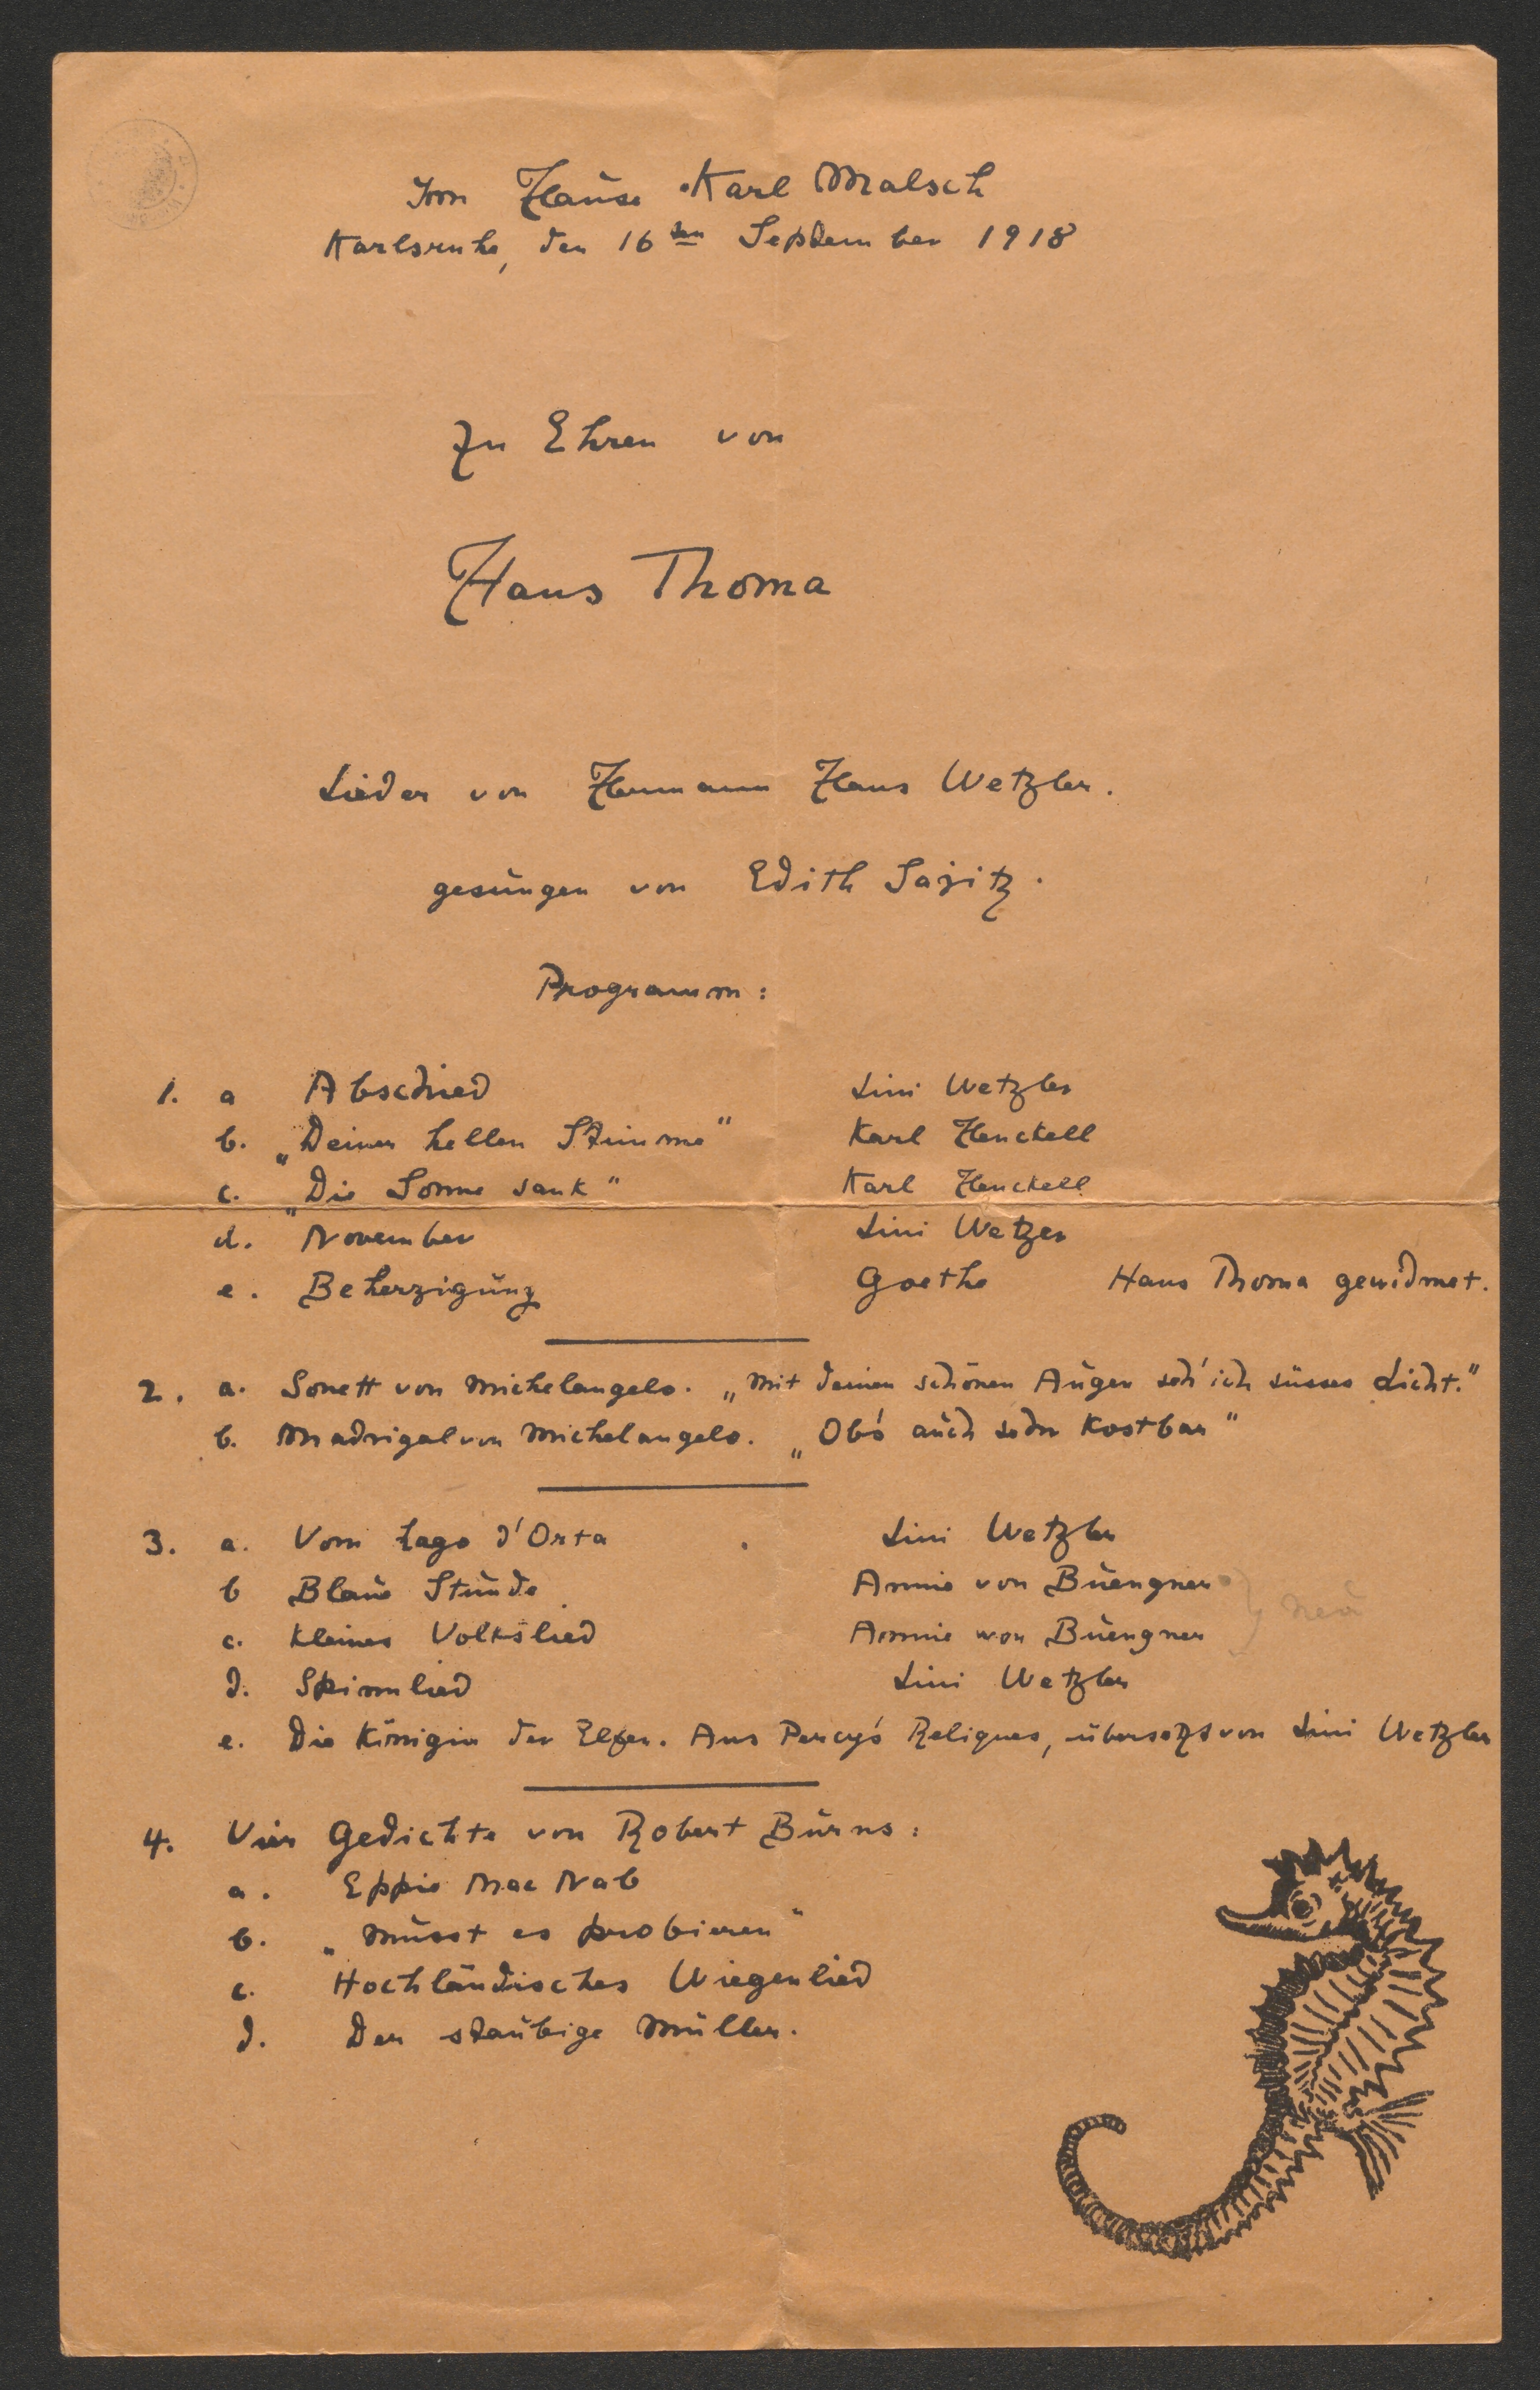 Im Hause Karl Malsch
Karlsruhe, den 16ten September 1918
Zu Ehren von
Hans Thoma
Lieder von Hermann Hans Wetzler.
gesungen von Edith Sajitz.
Programm:
1. a Abschied Lini Wetzler
b. „Deiner hellen Stimme" Karl Henckell
c. „Die Sonne sank" Karl Henckell
d. November Lini Wetzer
e. Beherzigung Goethe Hans Thoma gewidmet.
2. a. Sonett von Michelangelo. „Mit deinen schönen Augen seh' ich süsses Licht."
b. Madrigal von Michelangelo. „Ob's auch sehr kostbar"
3. a. Vom Lago d'Orta Lini Wetzler
b Blaue Stunde Annie von Buengner
c. Kleines Volkslied Annie von Buengner } neu
d. Spinnlied Lini Wetzler
e. Die Königin der Elfen. Aus Percy's Reliques, übersetzt von Lini Wetzler
4. Vier Gedichte von Robert Burns:
a. Eppie Mac Nab
b. „Musst es probieren"
c. Hochländisches Wiegenlied
d. Der staubige Müller.